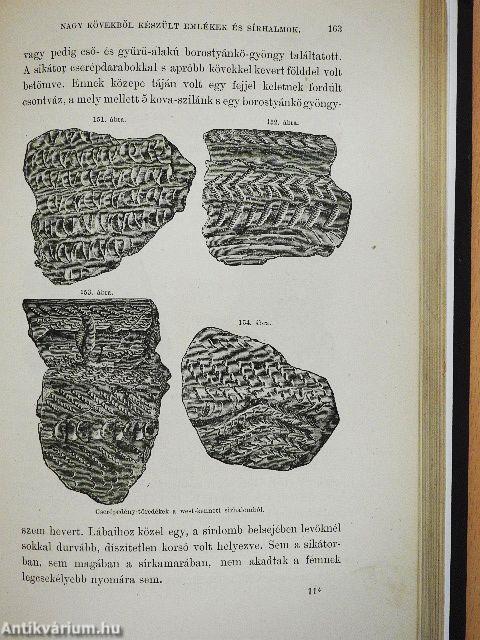 NAGY KÖVEKBŐL KÉSZÜLT EMLÉKEK ÉS SÍRHALMOK. 163
vagy pedig cső- és gyűrü-alakú borostyánkő-gyöngy találtatott.
A sikátor cserépdarabokkal s apróbb kövekkel kevert földdel volt
betömve. Ennek közepe táján volt egy fejjel keletnek fordúlt
csontváz, a mely mellett 5 kova-szilánk s egy borostyánkő gyöngy-
151. ábra. 152. ábra.
153. ábra.
154. ábra.
Cserépedény-töredékek a west-kenneti sírhalomból.
szem hevert. Lábaihoz közel egy, a sírdomb belsejében levőknél
sokkal durvább, díszítetlen korsó volt helyezve. Sem a sikátor-
ban, sem magában a sírkamarában, nem akadtak a fémnek
legcsekélyebb nyomára sem.
11*
Antikvárium.hu